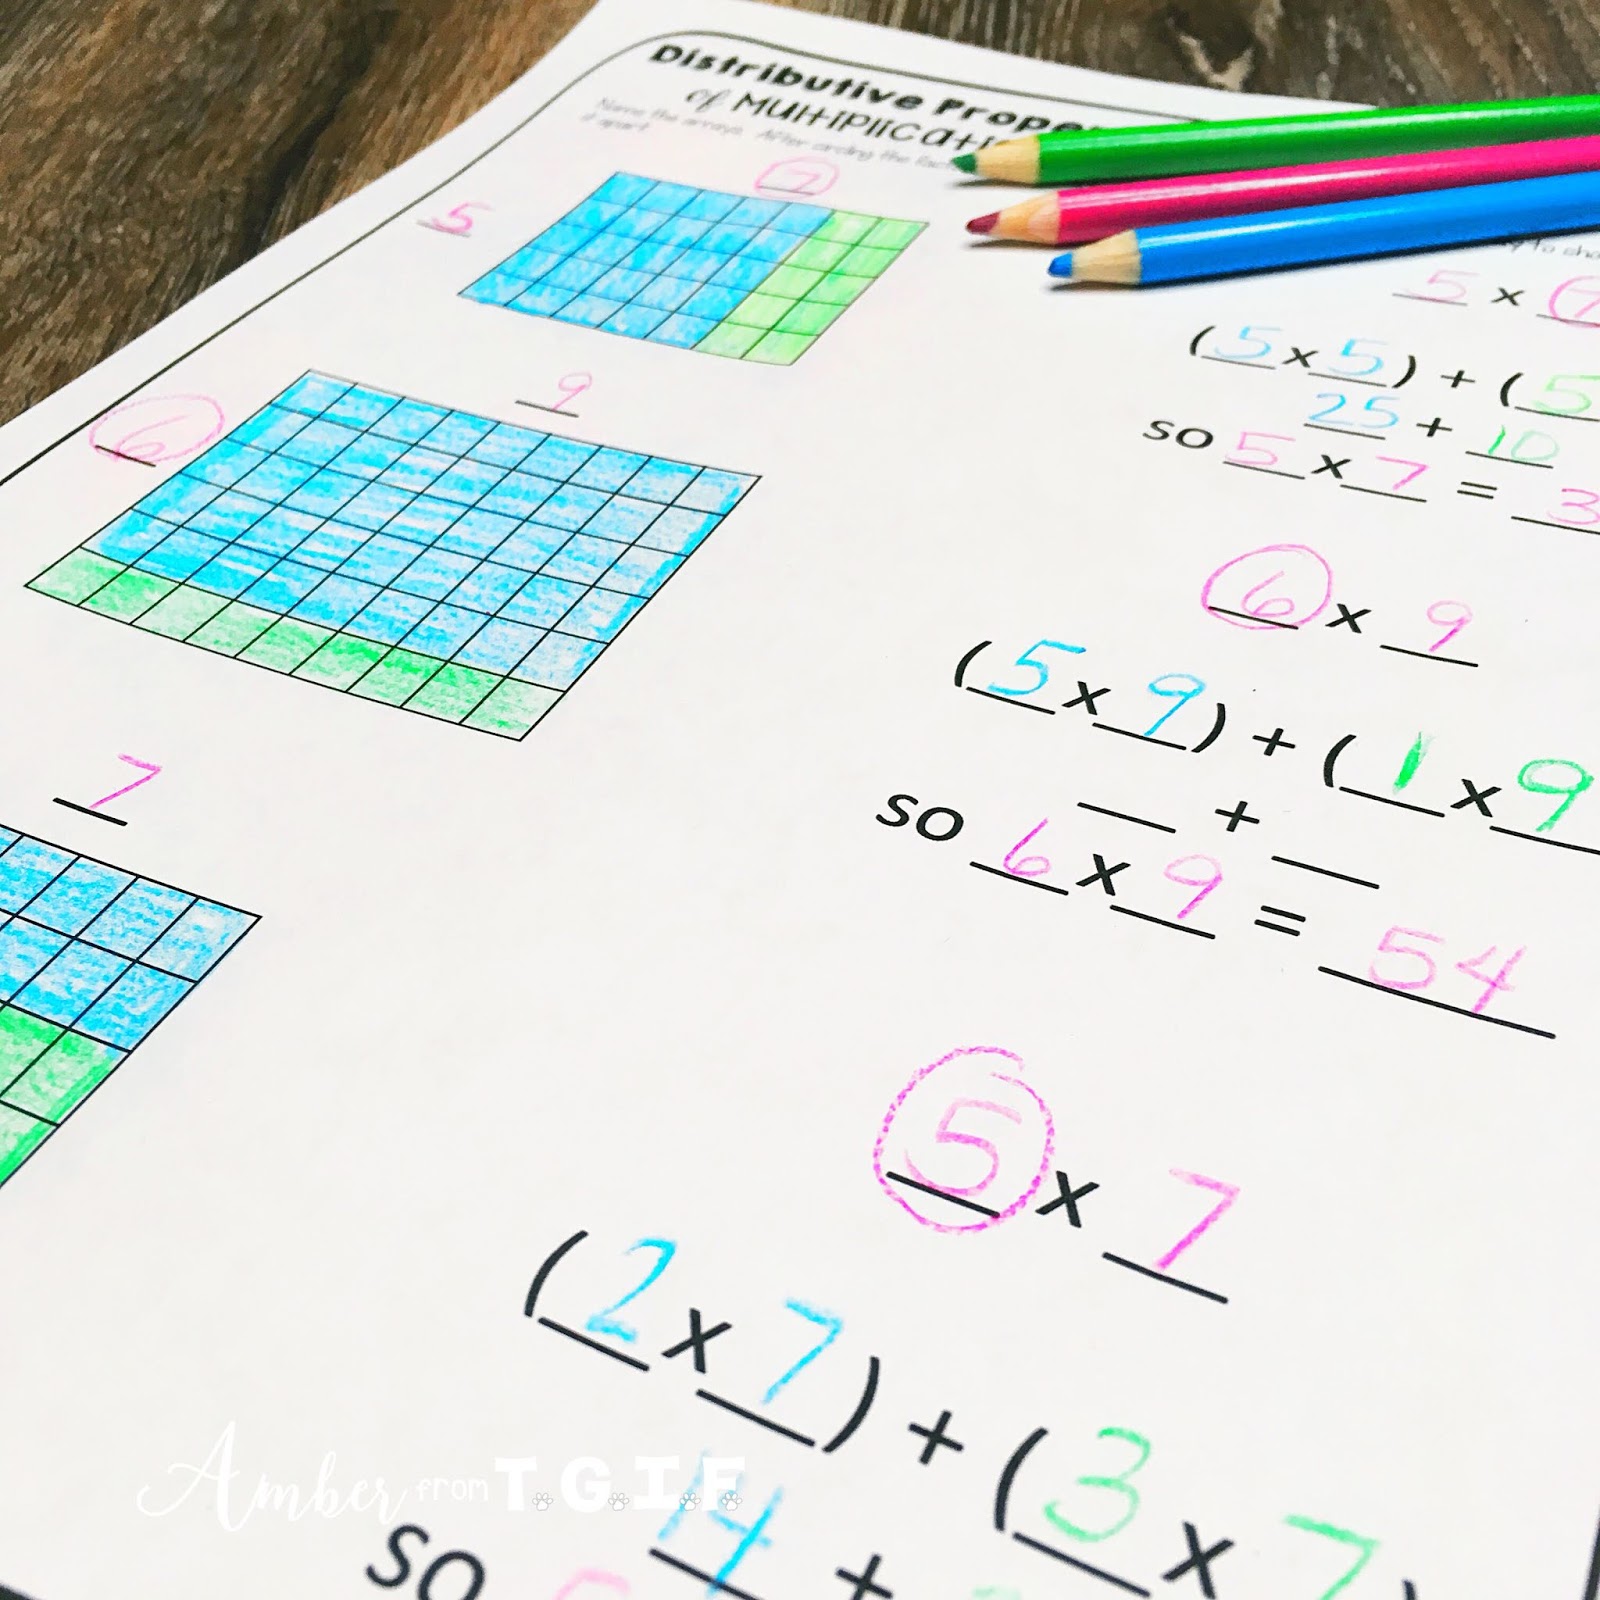 Distributive Proper
of Multiplicati
Name the arrays. After circling the fact
it apart
7
5
5 x 7
(5 x 5) + (5
25 + 10
so 5 x 7 = 3
9
6
6 x 9
(5 x 9) + (1 x 9
__ + __
so 6 x 9 = 54
7
5 x 7
(2 x 7) + (3 x 7)
14 +
so
Amber from T.G.I.F.